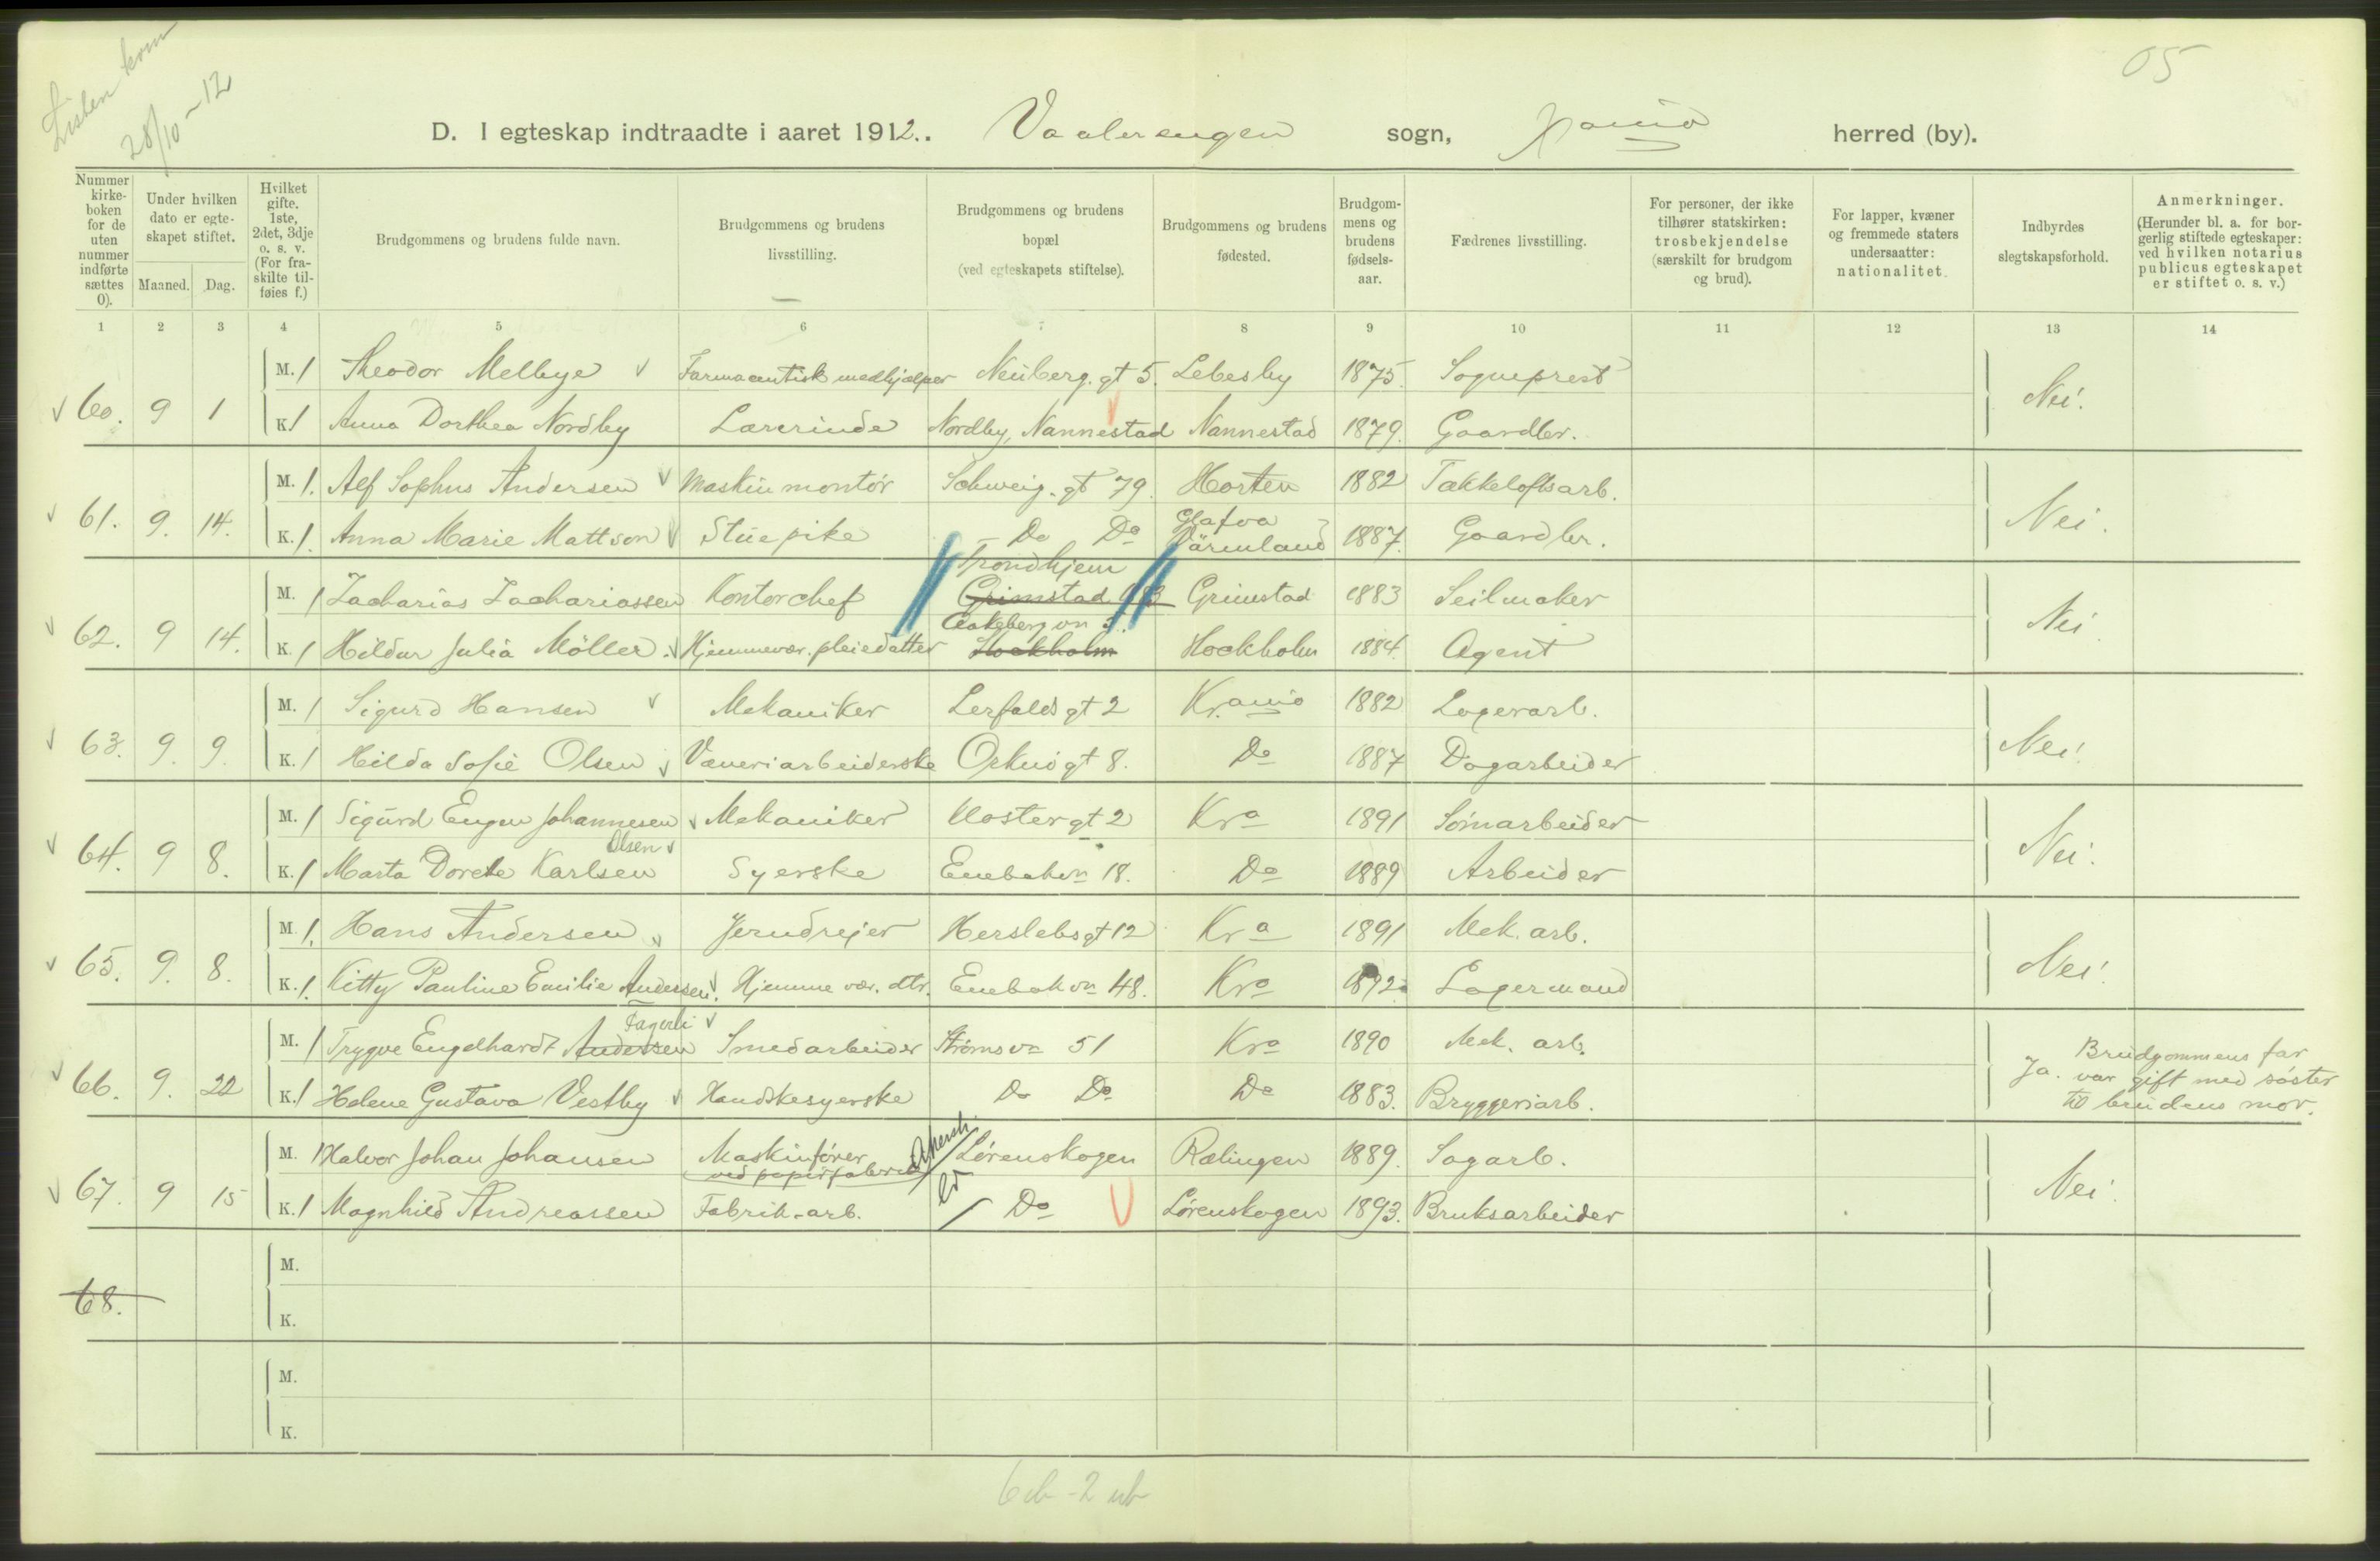 Listen kom
28/10 - 12
05
D. I egteskap indtraadte i aaret 1912.. Vaalerengen sogn, Xania herred (by).
Nummer kirke-boken for de uten nummer indførte sættes 0).
Under hvilken dato er egte-skapet stiftet.
Maaned. Dag.
Hvilket gifte. 1ste, 2det, 3dje o. s. v. (For fra-skilte til-føies f.)
Brudgommens og brudens fulde navn.
Brudgommens og brudens livsstilling.
Brudgommens og brudens bopæl (ved egteskapets stiftelse).
Brudgommens og brudens fødested.
Brudgom-mens og brudens fødsels-aar.
Fædrenes livsstilling.
For personer, der ikke tilhører statskirken: trosbekjendelse (særskilt for brudgom og brud).
For lapper, kvæner og fremmede staters undersaatter: nationalitet.
Indbyrdes slegtskapsforhold.
Anmerkninger. (Herunder bl. a. for bor-gerlig stiftede egteskaper: ved hvilken notarius publicus egteskapet er stiftet o. s. v.)
1 2 3 4 5 6 7 8 9 10 11 12 13 14
M. 1 Theodor Melbye Farmaceutisk medhjælper Neuberg. gt 5. Lebesby 1875. Sogneprest
60. 9 1 Nei.
K. 1 Anna Dorthea Nordby Lærerinde Nordby, Nannestad Nannestad 1879. Gaardbr.
M. 1. Alf Sophus Andersen Maskinmontör Schweig. gt 79. Horten 1882 Takkeloftsarb.
61. 9. 14. Nei.
K. 1. Anna Marie Mattson Stuepike Do Do Glafva Värmland 1887. Gaardbr.
Trondhjem
M. 1 Zacharias Zachariassen Kontorchef Grimstad Grimstad 1883 Seilmaker
62. 9 14. Nei.
Ekeberg vn
K. 1 Hildur Julia Möller. Hjemmevær. pleiedatter Stockholm Stockholm 1884. Agent
M. 1 Sigurd Hansen Mekaniker Lerfalds gt 2 Kr.ania 1882 Lagerarb.
63. 9. 9. Nei.
K. 1 Hilda Sofie Olsen Væveriarbeiderske Orknö gt 8. Do 1887 Dagarbeider
M. 1 Sigurd Eugen Johannesen Mekaniker Kloster gt 2 Kra 1891 Sömarbeider
Olsen
64. 9 8. Nei.
K. 1 Marta Dorete Karlsen Syerske Enebakvn 18. Do 1889 Arbeider
M. 1. Hans Andersen Jerndreier Herslebs gt 12 Kra 1891 Mek. arb.
65. 9. 8. Nei.
K. 1. Kitty Pauline Emilie Andersen. Hjemme vær. dtr. Enebakvn 48. Kra 1892. Lagermand
Fagerli
M. 1 Trygve Engelhardt Andersen Smedarbeider Strömsvn 51 Kra 1890 Mek. arb.
66. 9. 22 Ja. Brudgommens far var gift med söster til brudens mor.
K. 1 Helene Gustava Vestby Handskesyerske Do Do Do 1883. Bryggeriarb.
M. 1 Halvor Johan Johansen Maskinfører ved papirfabrik Akersh. Lörenskogen Rælingen 1889. Sagarb.
67. 9 15 Nei.
K. 1 Magnhild Andreassen Fabrik-arb. Do Lörenskogen 1893. Bruksarbeider
M.
68.
K.
M.
K.